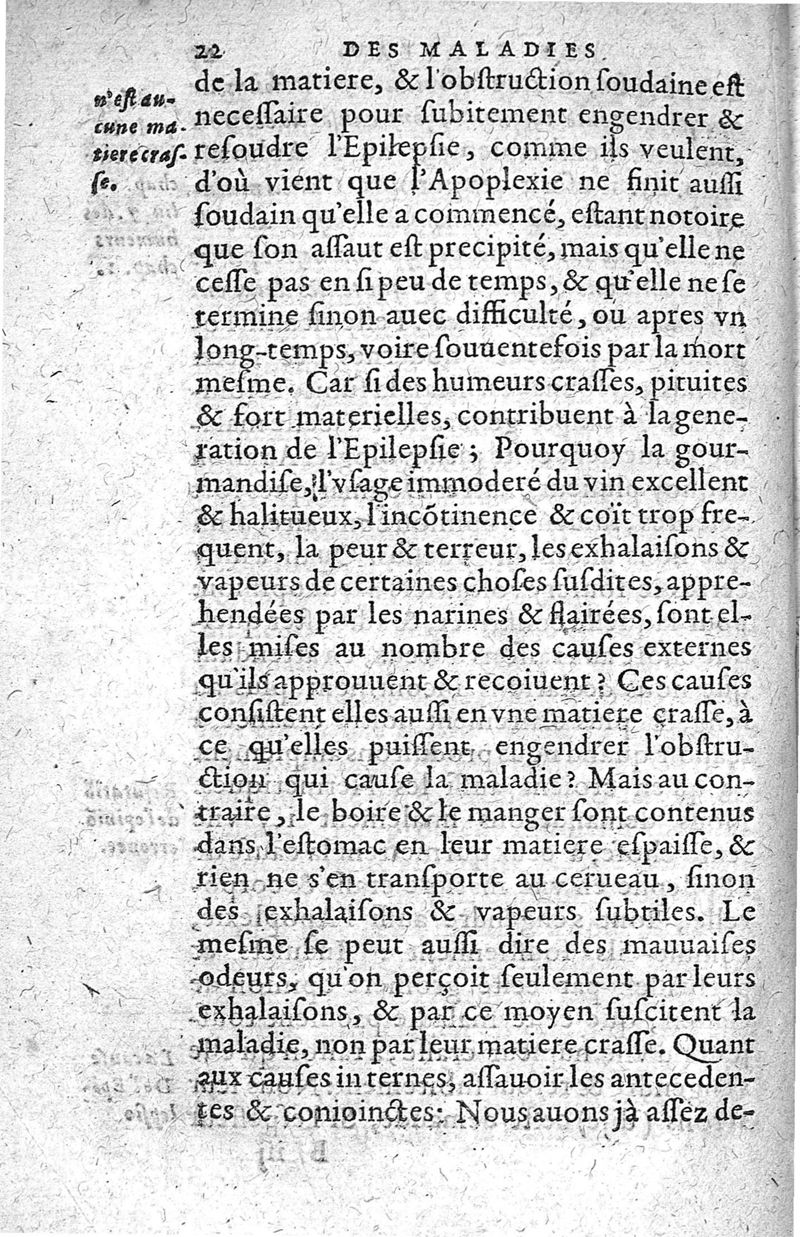 22 DES MALADIES
n'eſt au-
cune ma-
tiere craſ-
ſe.
de la matiere, & l'obſtruction ſoudaine eſt
neceſſaire pour ſubitement engendrer &
reſoudre l'Epilepſie, comme ils veulent,
d'où vient que l'Apoplexie ne finit auſſi
ſoudain qu'elle a commencé, eſtant notoire
que ſon aſſaut eſt precipité, mais qu'elle ne
ceſſe pas en ſi peu de temps, & qu'elle ne ſe
termine ſinon auec difficulté, ou apres vn
long-temps, voire ſouuentefois par la mort
meſme. Car ſi des humeurs craſſes, pituites
& fort materielles, contribuent à la gene-
ration de l'Epilepſie; Pourquoy la gour-
mandiſe, l'vſage immoderé du vin excellent
& halitueux, l'incõtinence & coït trop fre-
quent, la peur & terreur, les exhalaiſons &
vapeurs de certaines choſes ſuſdites, appre-
hendées par les narines & flairées, ſont el-
les miſes au nombre des cauſes externes
qu'ils approuuent & recoiuent? Ces cauſes
conſiſtent elles auſſi en vne matiere craſſe, à
ce qu'elles puiſſent engendrer l'obſtru-
ction qui cauſe la maladie? Mais au con-
traire, le boire & le manger ſont contenus
dans l'eſtomac en leur matiere eſpaiſſe, &
rien ne s'en tranſporte au cerueau, ſinon
des exhalaiſons & vapeurs ſubtiles. Le
meſme ſe peut auſſi dire des mauuaiſes
odeurs, qu'on perçoit ſeulement par leurs
exhalaiſons, & par ce moyen ſuſcitent la
maladie, non par leur matiere craſſe. Quant
aux cauſes internes, aſſauoir les anteceden-
tes & conioinctes: Nous auons jà aſſez de-